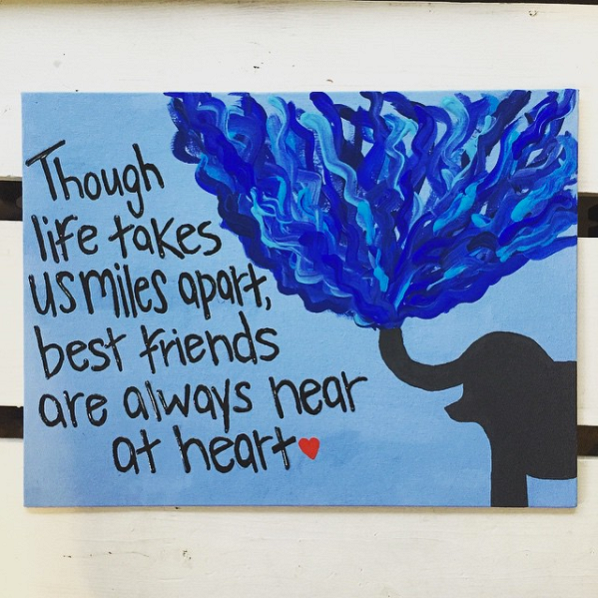 Though
life takes
us miles apart,
best friends
are always near
at heart